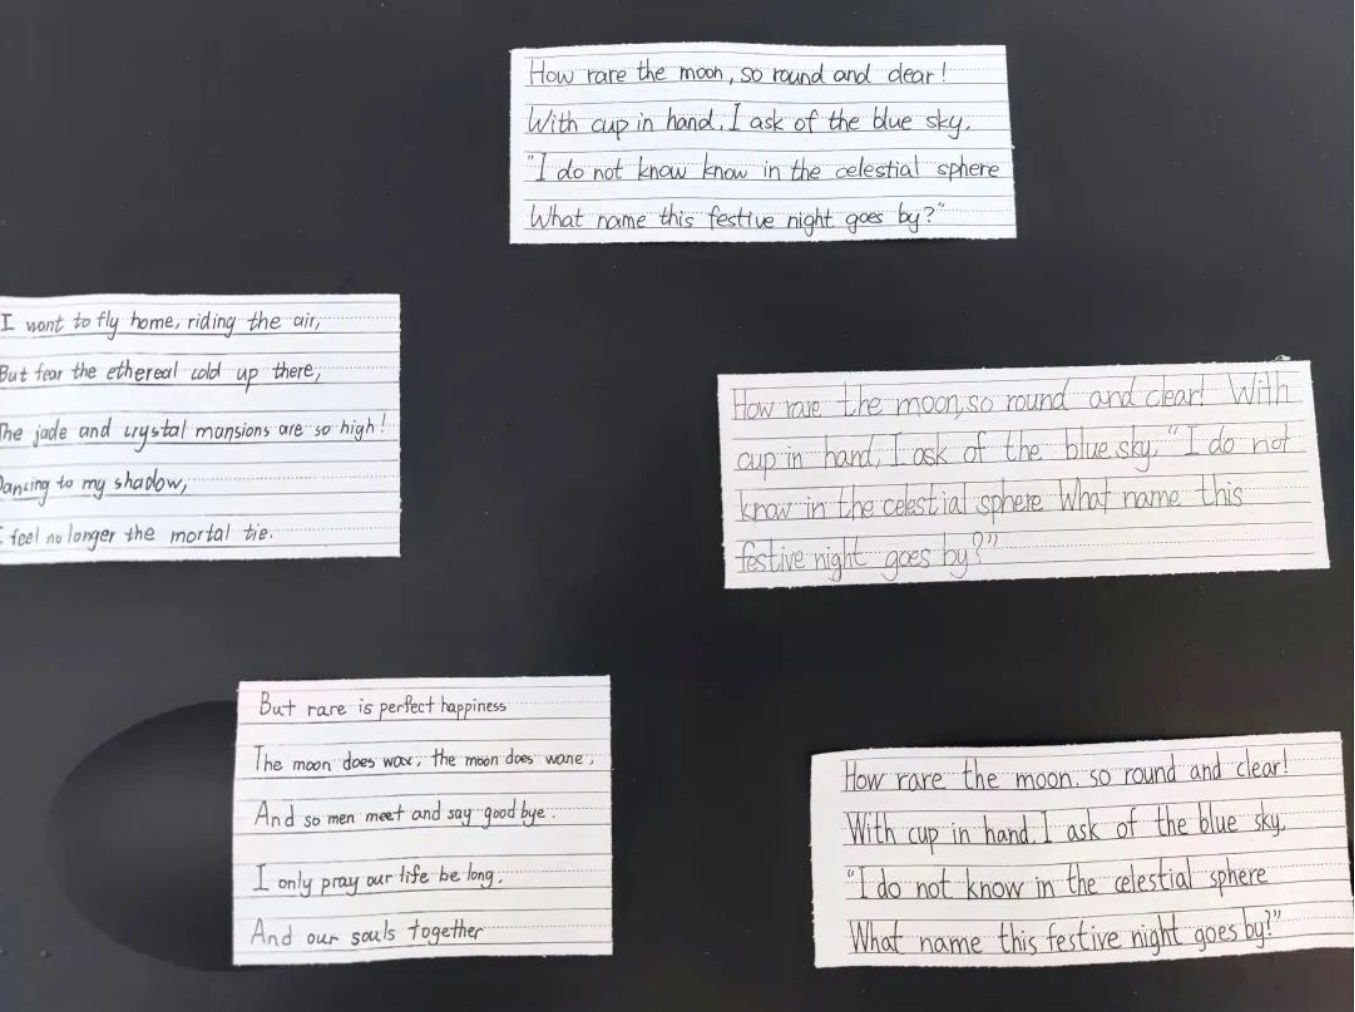 How rare the moon, so round and clear!
With cup in hand, I ask of the blue sky.
"I do not know know in the celestial sphere
What name this festive night goes by?"
I want to fly home, riding the air,
But fear the ethereal cold up there,
The jade and crystal mansions are so high!
Dancing to my shadow,
I feel no longer the mortal tie.
How rare the moon, so round and clear! With
cup in hand, I ask of the blue sky, "I do not
know in the celestial sphere What name this
festive night goes by?"
But rare is perfect happiness
The moon does wax, the moon does wane,
And so men meet and say good bye.
I only pray our life be long,
And our souls together
How rare the moon. so round and clear!
With cup in hand. I ask of the blue sky.
"I do not know in the celestial sphere
What name this festive night goes by?"